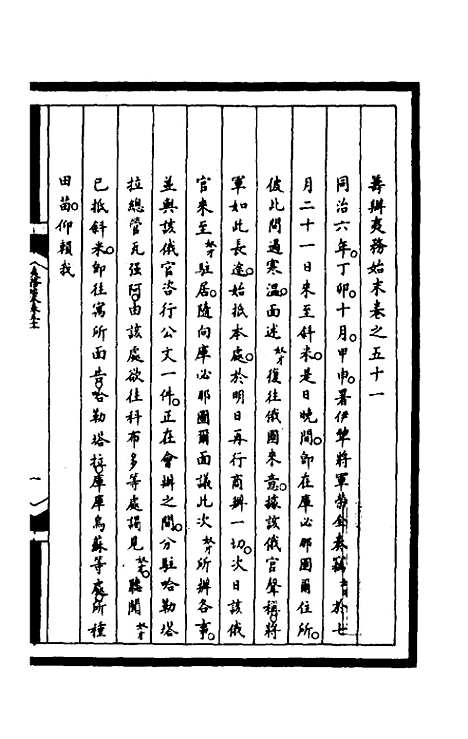 籌辦夷務始末卷之五十一
同治六年。丁卯。十月。甲申。署伊犂將軍榮全奏竊於七
月二十一日來至斜米。是日晚間。卽在庫必那圖爾住所。
彼此問過寒溫。面述奴才復往俄國來意。據該俄官聲稱將
軍如此長途。始抵本處。於明日再行商辦一切。次日該俄
官來至奴才駐居。隨向庫必那圖爾面議此次奴才所辦各事。
並與該俄官咨行公文一件。正在會辦之間。分駐哈勒塔
拉總管瓦强阿。由該處欲往科布多等處謁見奴才。聽聞奴才
已抵斜米。卽往寓所面告。哈勒塔拉。庫庫烏蘇等處。所種
田苗。仰賴我
一